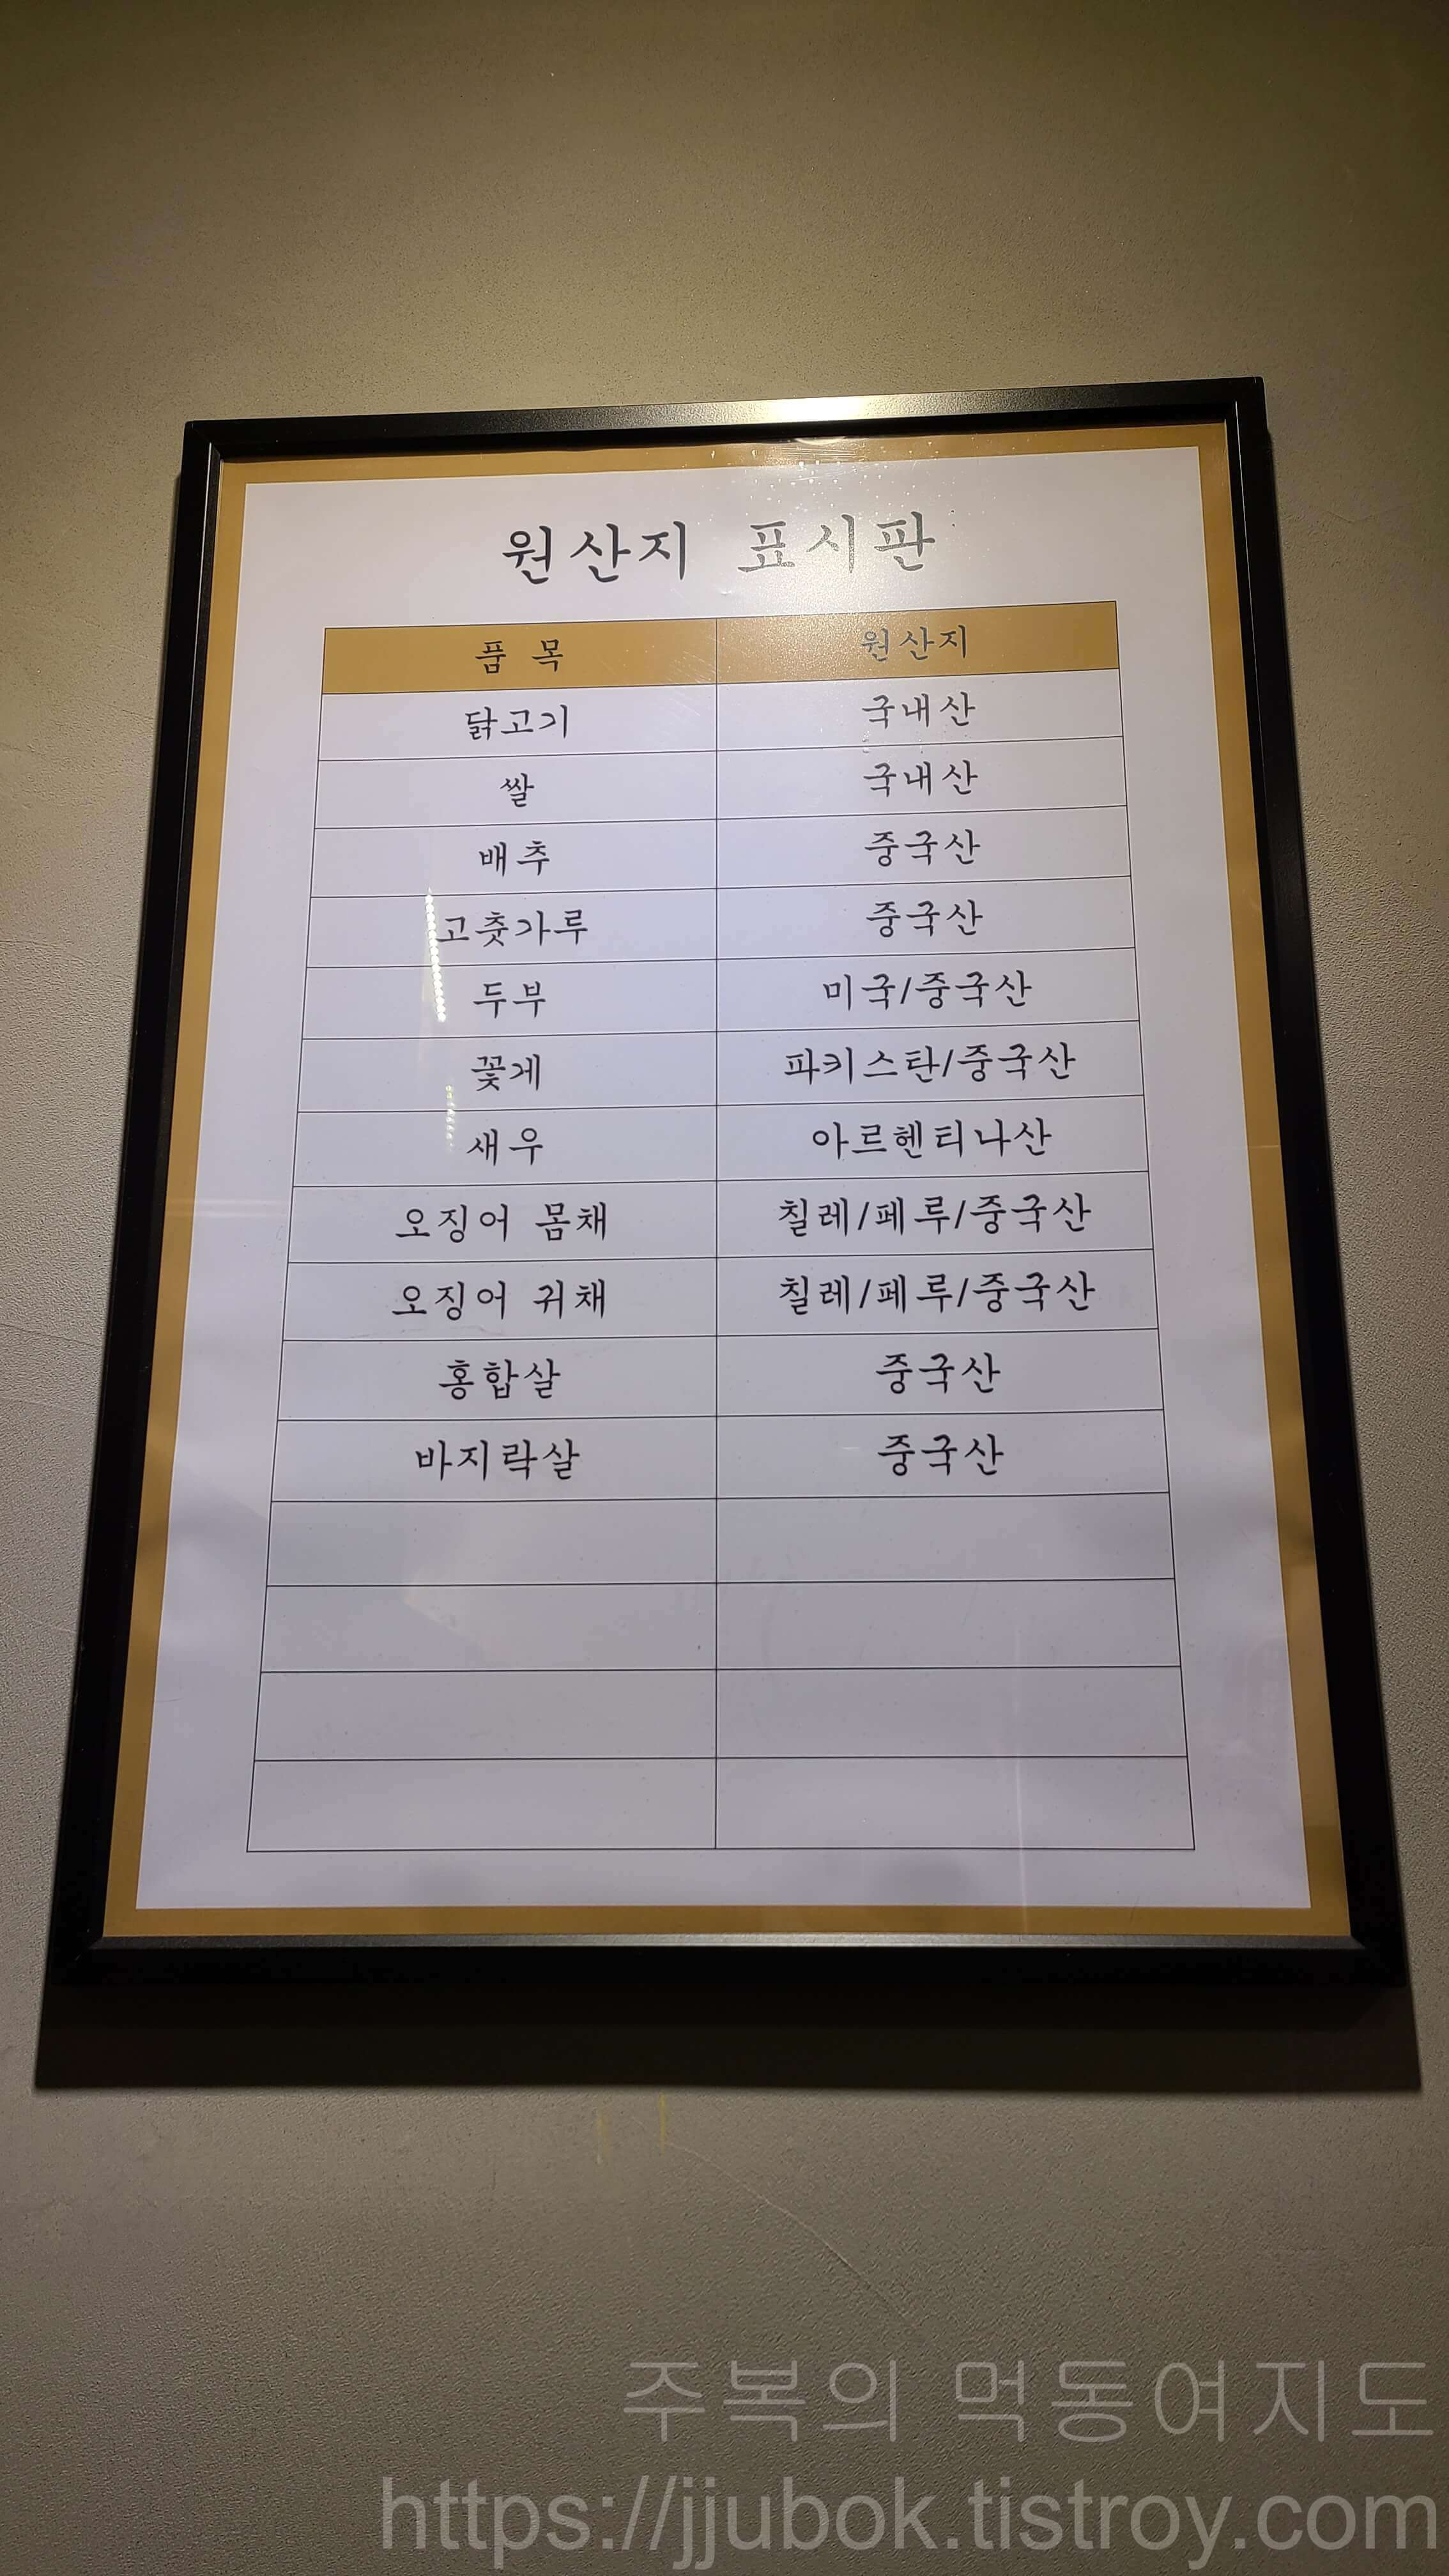 원산지 표시판
품 목 원산지
닭고기 국내산
쌀 국내산
배추 중국산
고춧가루 중국산
두부 미국/중국산
꽃게 파키스탄/중국산
새우 아르헨티나산
오징어 몸채 칠레/페루/중국산
오징어 귀채 칠레/페루/중국산
홍합살 중국산
바지락살 중국산
주복의 먹동여지도
https://jjubok.tistroy.com